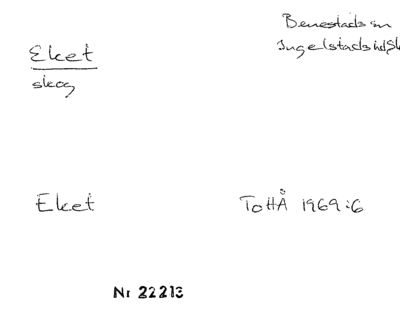 Benestads sn
Eket
Ingelstads hd, Sk
skog
Eket
ToHÅ 1969:6
Nr 22213